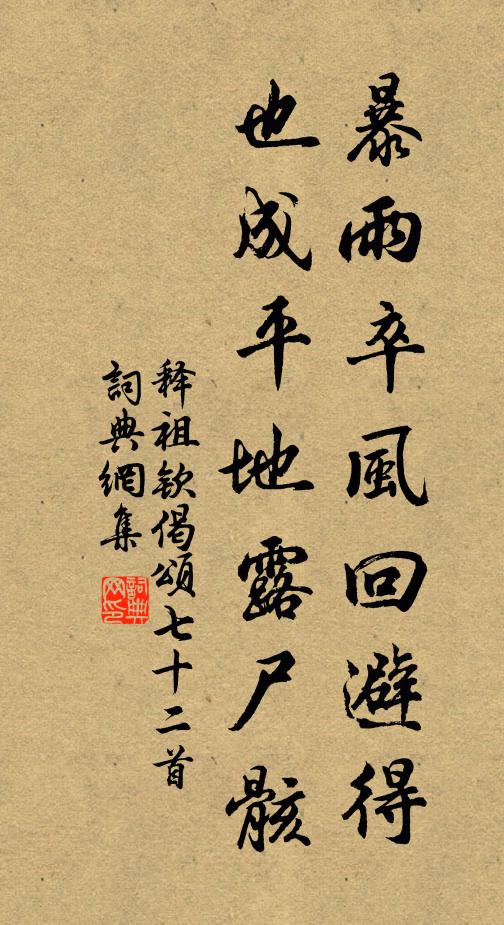 暴雨卒風回避得
也成平地露尸骸
释祖钦偈頌七十二首
詞典網集
詞典网印